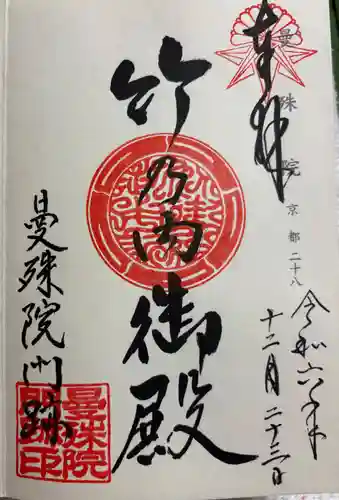 奉拝
曼殊院 京都二十八
令和六年
十二月二十三日
竹乃内御殿
曼殊院門跡
曼殊院